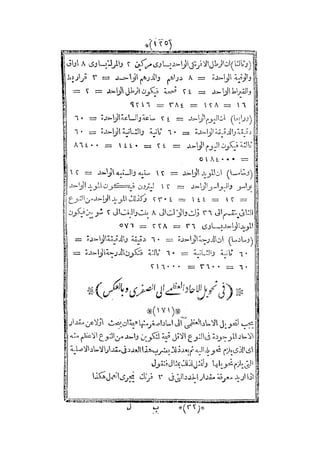 *(١٢٥)*
(وثالثا) ان الرطل الافرنجى الواحد يساوى مركين = ٢ والمرك يساوى ٨ اواق
والوقية الواحدة = ٨ دراهم والدرهم الواحد = ٣ قراريط
والقيراط الواحد = ٢٤ قمحة فيكون الرطل الواحد = ٢ =
١٦ = ١٢٨ = ٣٨٤ = ٩٢١٦
(ورابعا) ان اليوم الواحد = ٢٤ ساعة والساعة الواحدة = ٦٠
دقيقة والدقيقة الواحدة = ٦٠ ثانية والثانية الواحدة = ٦٠
ثالثة فيكون اليوم الواحد = ٢٤ = ١٤٤٠ = ٨٦٤٠٠
= ٥١٨٤٠٠٠
(وخامسا) ان الواحد = ١٢ والواحد = ١٢
الواحد = ١٢ فيكون الواحد
= ١٢ = ١٤٤ = ٢٣٠٤ وكذلك الواحد من النوع
الثانى ينقسم الى ٣٦ الى ٨ الى ٢ فيكون
الواحد يساوى ٣٦ = ٢٨٨ = ٥٧٦
(وسادسا) ان الدرجة الواحدة = ٦٠ دقيقة والدقيقة الواحدة =
٦٠ ثانية والثانية = ٦٠ ثالثة فتكون الدرجة الواحدة =
٦٠ = ٣٦٠٠ = ٢١٦٠٠٠
*(فى تحويل الآحاد العظمى الى الصغرى وبالعكس)*
*(١٧١)*
يجب لتحويل الآحاد العظمى الى آحاد اصغر منها ان يبحث اولا عن مقدار
الآحاد الموجودة فى النوع الاقل قيمة لتكوين واحد من النوع الاعظم منه
الذى يلزم تحويله اليه ثم بعد ذلك يضرب هذا العدد فى مقدار الآحاد الاصلية
التى يلزم تحويلها ولنمثل لذلك بمثال فنقول
اذا اريد معرفة مقدار الجدد التى فى ٣ فرنك فيجرى العمل هكذا
*(٣٢)* ب ل